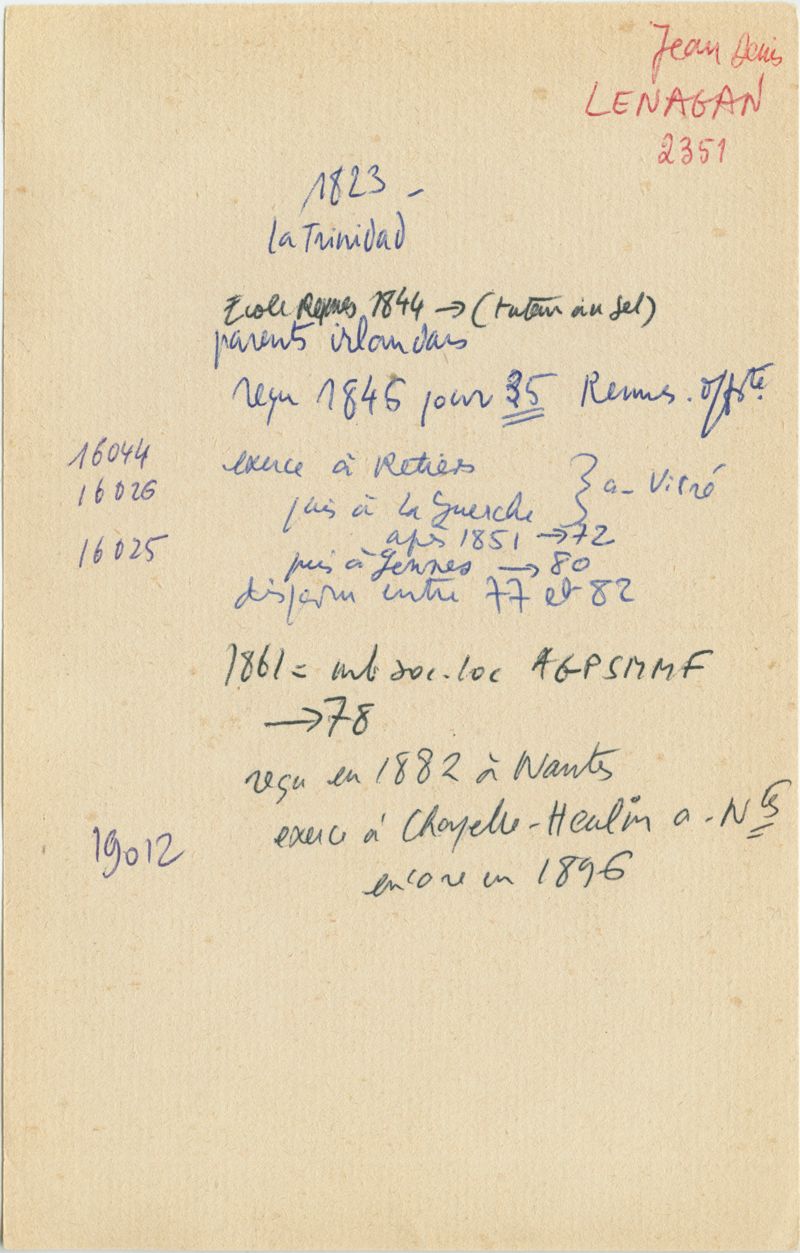 Jean Denis
LENAGAN
2351
1823 -
la Trinidad
Ecole Rennes 1844 → (tuteur au Sel)
parents irlandais
reçu 1846 pour 35 Rennes.
16044 exerce à Retiers
16026 puis à La Guerche } a- Vitré
après 1851 → 72
16025 puis à Gennes → 80
disparu entre 77 et 82
1861 = mb soc. loc AGPSMMF
→ 78
reçu en 1882 à Nantes
exerce à Chapelle-Heulin a - Ntes
19012
encore en 1896